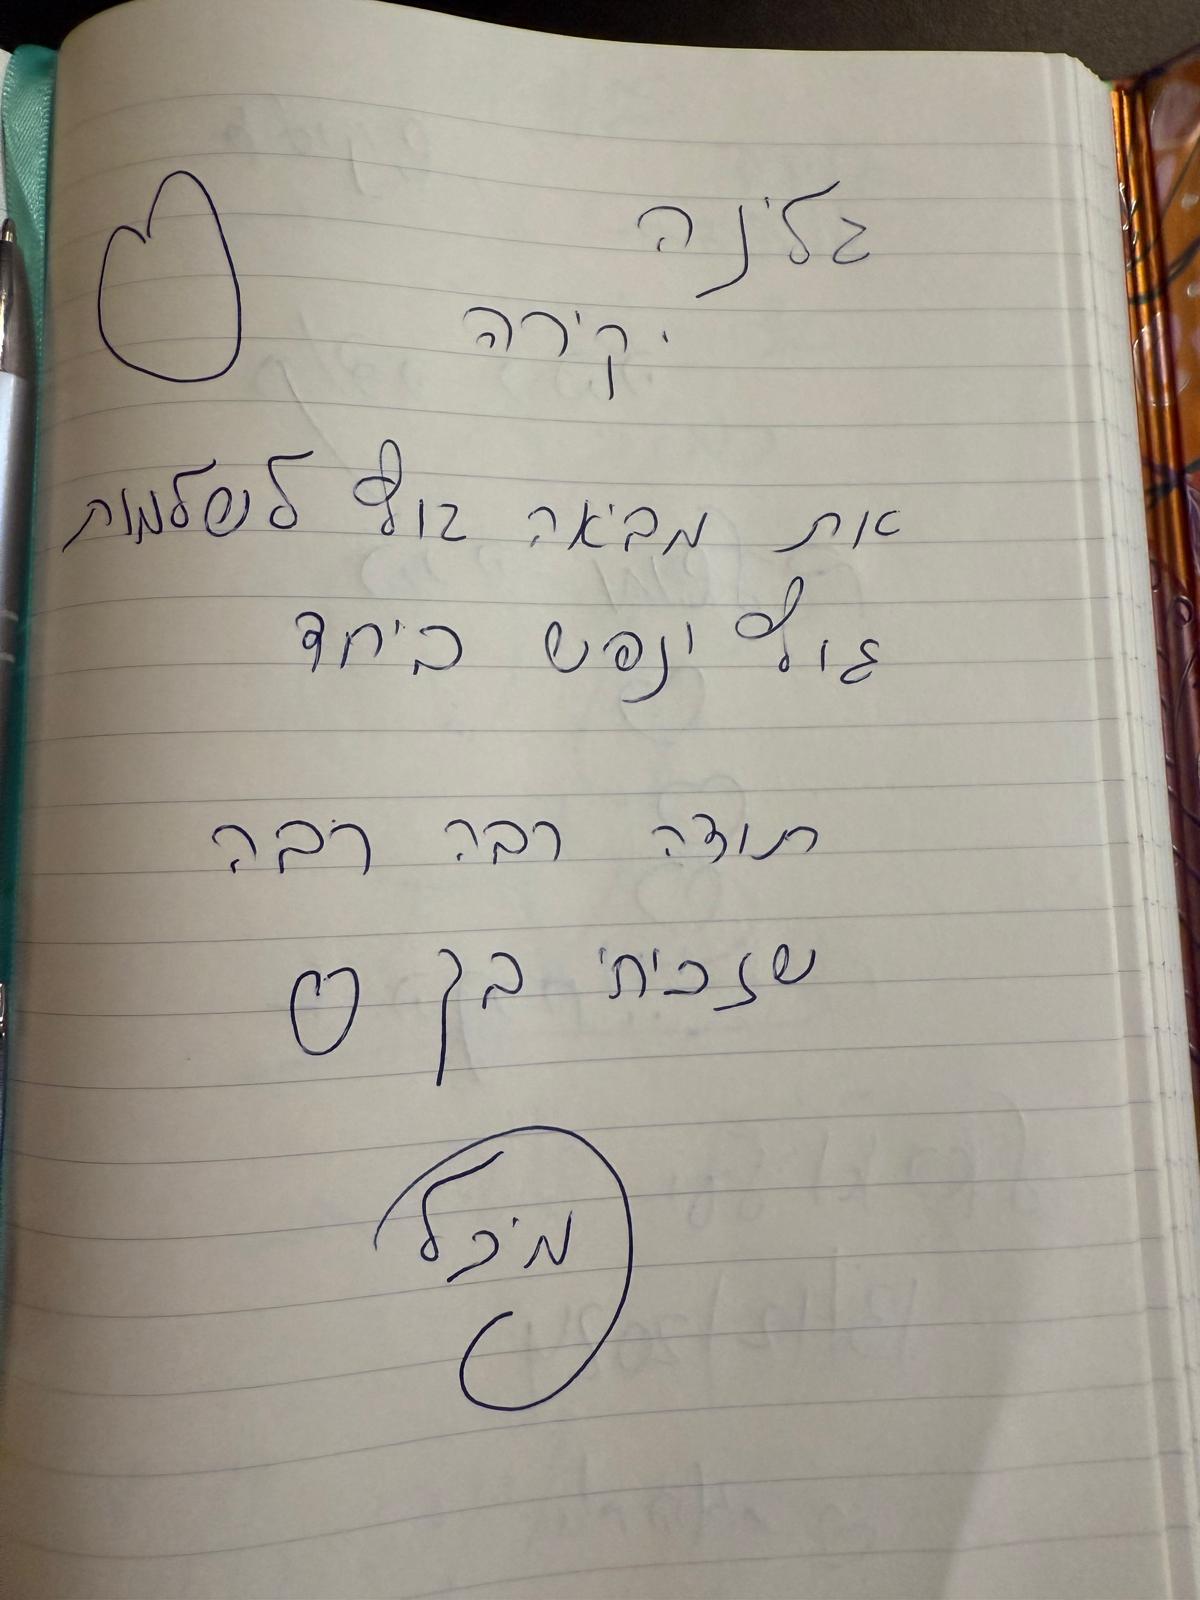 גלינה
יקירה
את מביאה גוף לשלמות
גוף ונפש ביחד
תודה רבה רבה
שזכיתי בך
מיכל